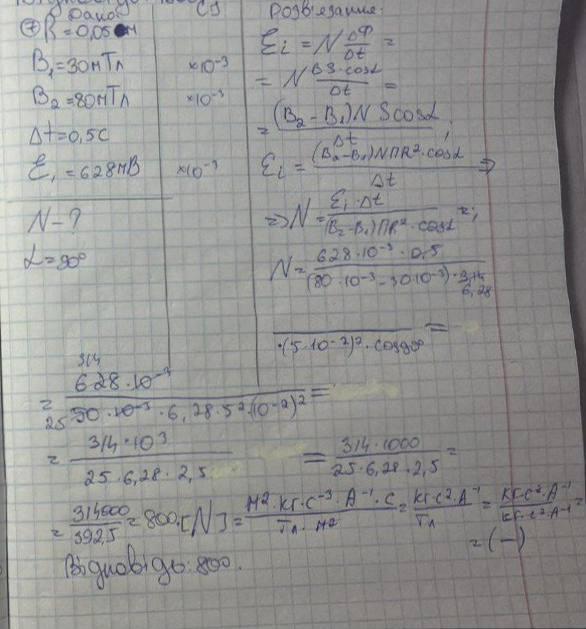 Дано
СІ
Розв'язання:
⑦ R = 0,05 м
B₁ = 30 мТл ×10⁻³
B₂ = 80 мТл ×10⁻³
Δt = 0,5 с
Ɛ₁ = 628 мВ ×10⁻³
N - ?
α = 90°
Ɛi = N ΔФ/Δt =
= N BS·cosα/Δt =
= (B₂ - B₁) N S cosα/Δt ;
Ɛi = (B₂ - B₁) N П R²·cosα/Δt ⇒
⇒ N = Ɛ₁·Δt/(B₂ - B₁) П R²·cosα =;
N = 628·10⁻³·0,5/(80·10⁻³ - 30·10⁻³)·3,14
6,28
·(5·10⁻²)²·cos90° =
314
= 628·10⁻³/50·10⁻³·6,28·5²·(10⁻²)² =
25
= 314·10³/25·6,28·2,5 = 314·1000/25·6,28·2,5 =
= 314000/392,5 = 800. [N] = м²·кг·с⁻³·А⁻¹·с/Тл·м² = кг·с²·А⁻¹/Тл = кг·с²·А⁻¹/кг·с²·А⁻¹ =
= (-)
Відповідь: 800.